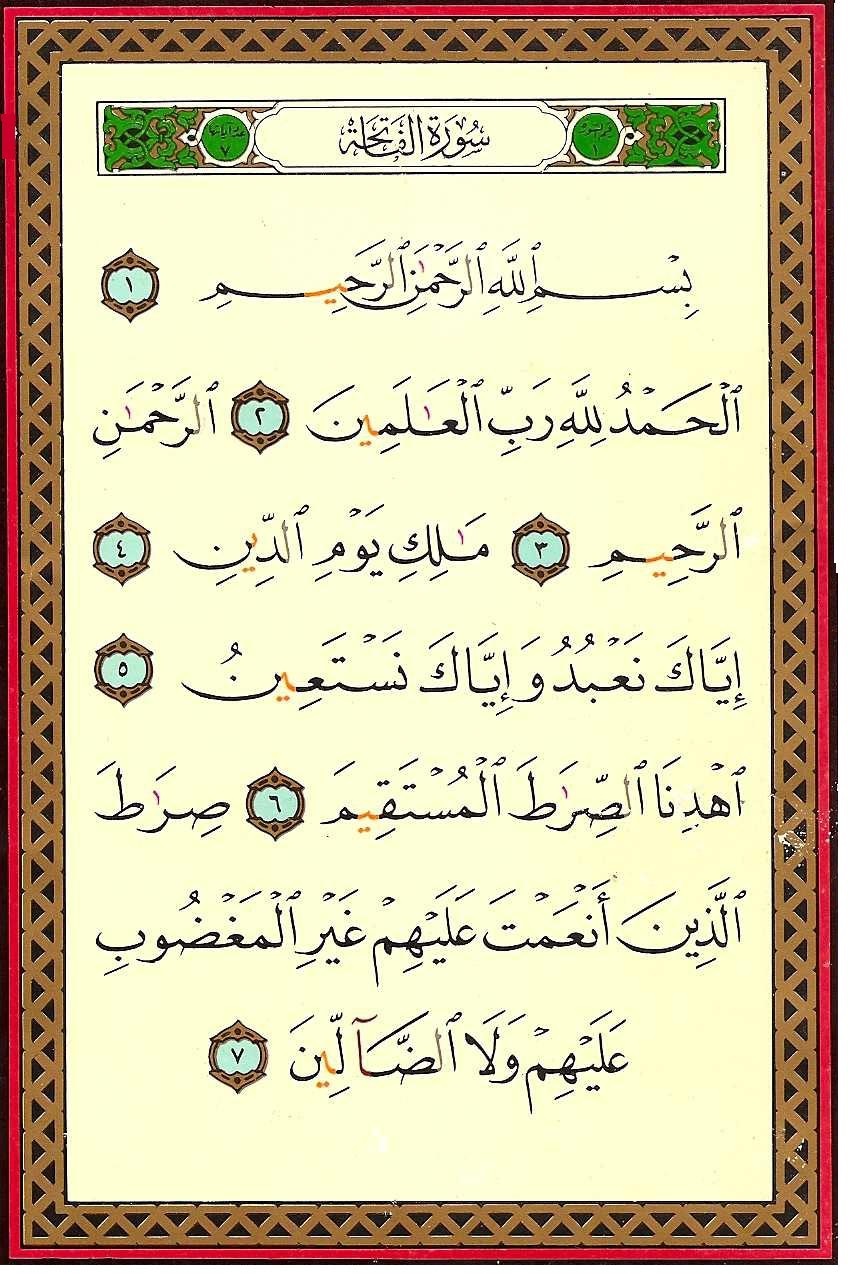 سُورَةُ الفَاتِحَة
عدد آياتها ٧
بِسۡمِ ٱللَّهِ ٱلرَّحۡمَٰنِ ٱلرَّحِيمِ ١
ٱلۡحَمۡدُ لِلَّهِ رَبِّ ٱلۡعَٰلَمِينَ ٢ ٱلرَّحۡمَٰنِ
ٱلرَّحِيمِ ٣ مَٰلِكِ يَوۡمِ ٱلدِّينِ ٤
إِيَّاكَ نَعۡبُدُ وَإِيَّاكَ نَسۡتَعِينُ ٥
ٱهۡدِنَا ٱلصِّرَٰطَ ٱلۡمُسۡتَقِيمَ ٦ صِرَٰطَ
ٱلَّذِينَ أَنۡعَمۡتَ عَلَيۡهِمۡ غَيۡرِ ٱلۡمَغۡضُوبِ
عَلَيۡهِمۡ وَلَا ٱلضَّآلِّينَ ٧